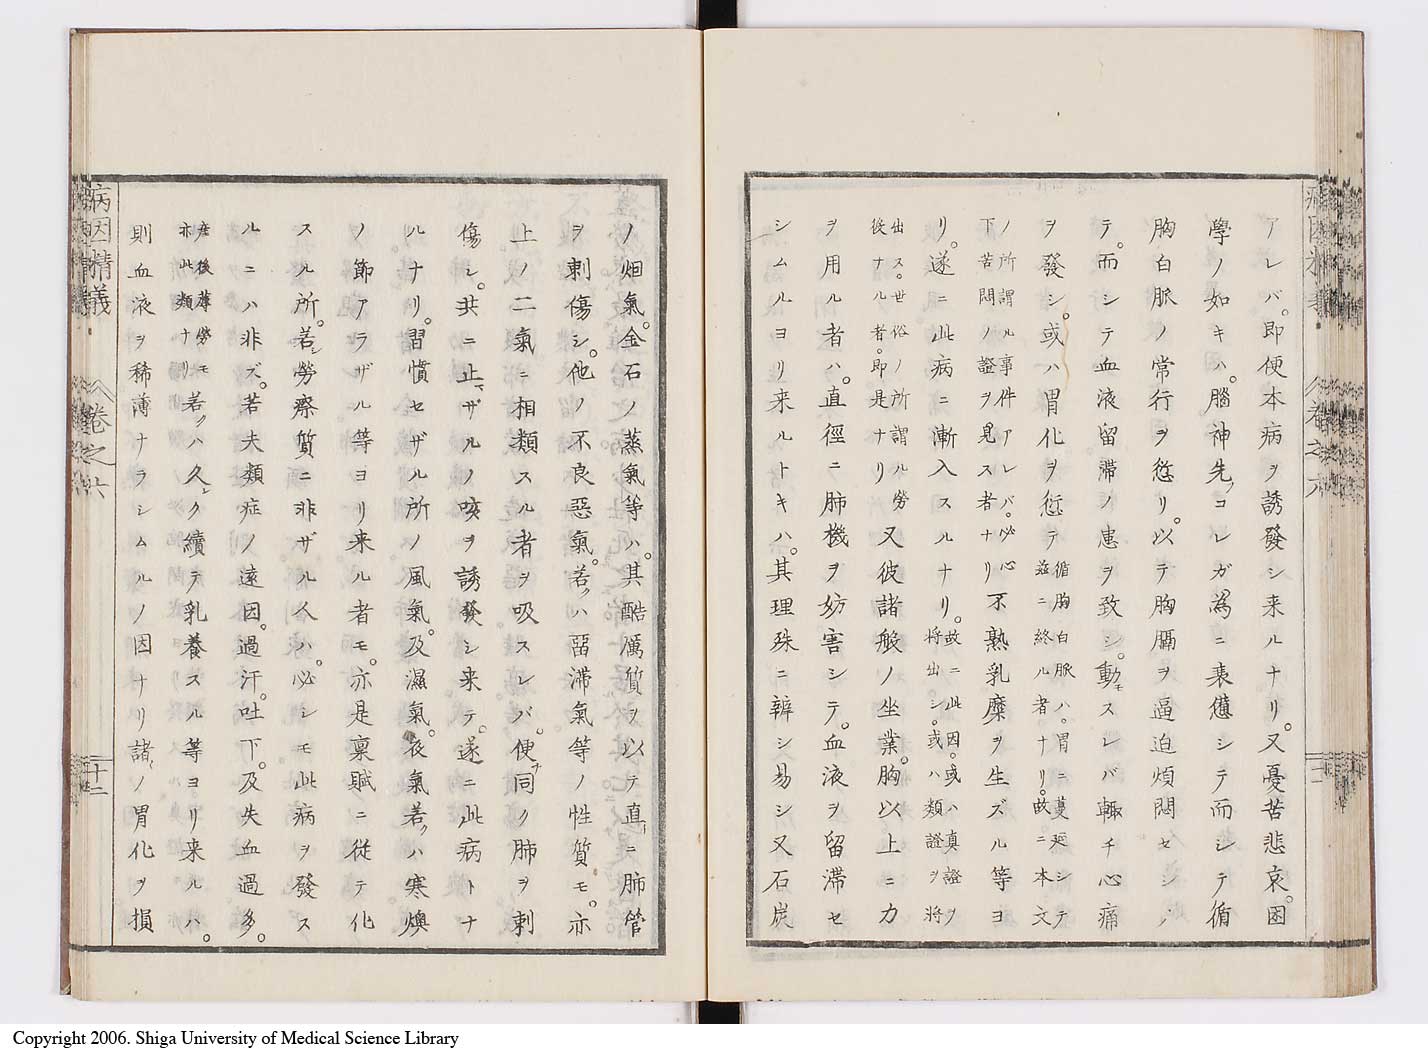 アレバ。即便本病ヲ誘發シ来ルナリ。又憂苦悲哀。困
學ノ如キハ。腦神先ヅコレガ為ニ衰憊シテ而シテ循
胸白脈ノ常行ヲ愆リ。以テ胸膈ヲ逼迫煩悶セシメ
テ。而シテ血液留滞ノ患ヲ致シ。動モスレバ輙チ心痛
ヲ發シ。或ハ胃化ヲ愆テ循胸白脈ハ。胃ニ蔓延シテ
玆ニ終ル者ナリ。故ニ本文
ノ所謂ル事件アレバ。必心
下苦悶ノ證ヲ見ス者ナリ不熟乳糜ヲ生ズル等ヨ
リ。遂ニ此病ニ漸入スルナリ。故ニ此因。或ハ真證ヲ
將出シ。或ハ類證ヲ將
出ス。世俗ノ所謂ル勞
後ナル者。即是ナリ又彼諸般ノ坐業。胸以上ニ力
ヲ用ル者ハ。直徑ニ肺機ヲ妨害シテ。血液ヲ留滞セ
シムルヨリ来ルトキハ。其理殊ニ辨シ易シ又石炭
病因精義 卷之六 十二
ノ烟氣。金石ノ蒸氣等ハ。其酷厲質ヲ以テ直ニ肺管
ヲ刺傷シ。他ノ不良惡氣。若クハ畱滞氣等ノ性質モ。亦
上ノ二氣ニ相類スル者ヲ吸スレバ。便チ同ク肺ヲ刺
傷シ。共ニ止マザルノ咳ヲ誘發シ来テ。遂ニ此病トナ
ルナリ。習慣セザル所ノ風氣。及濕氣。衣氣。若クハ寒燠
ノ節アラザル等ヨリ来ル者モ。亦是稟賦ニ従テ化
スル所。若シ勞瘵質ニ非ザル人ハ。必シモ此病ヲ發ス
ルニハ非ズ。若夫類症ノ遠因。過汗。吐下。及失血過多。
産後蓐勞モ
亦此類ナリ若クハ久シク續テ乳養スル等ヨリ来ルハ。
則血液ヲ稀薄ナラシムルノ因ナリ諸ノ胃化ヲ損
病因精義 卷之六 十二
Copyright 2006. Shiga University of Medical Science Library